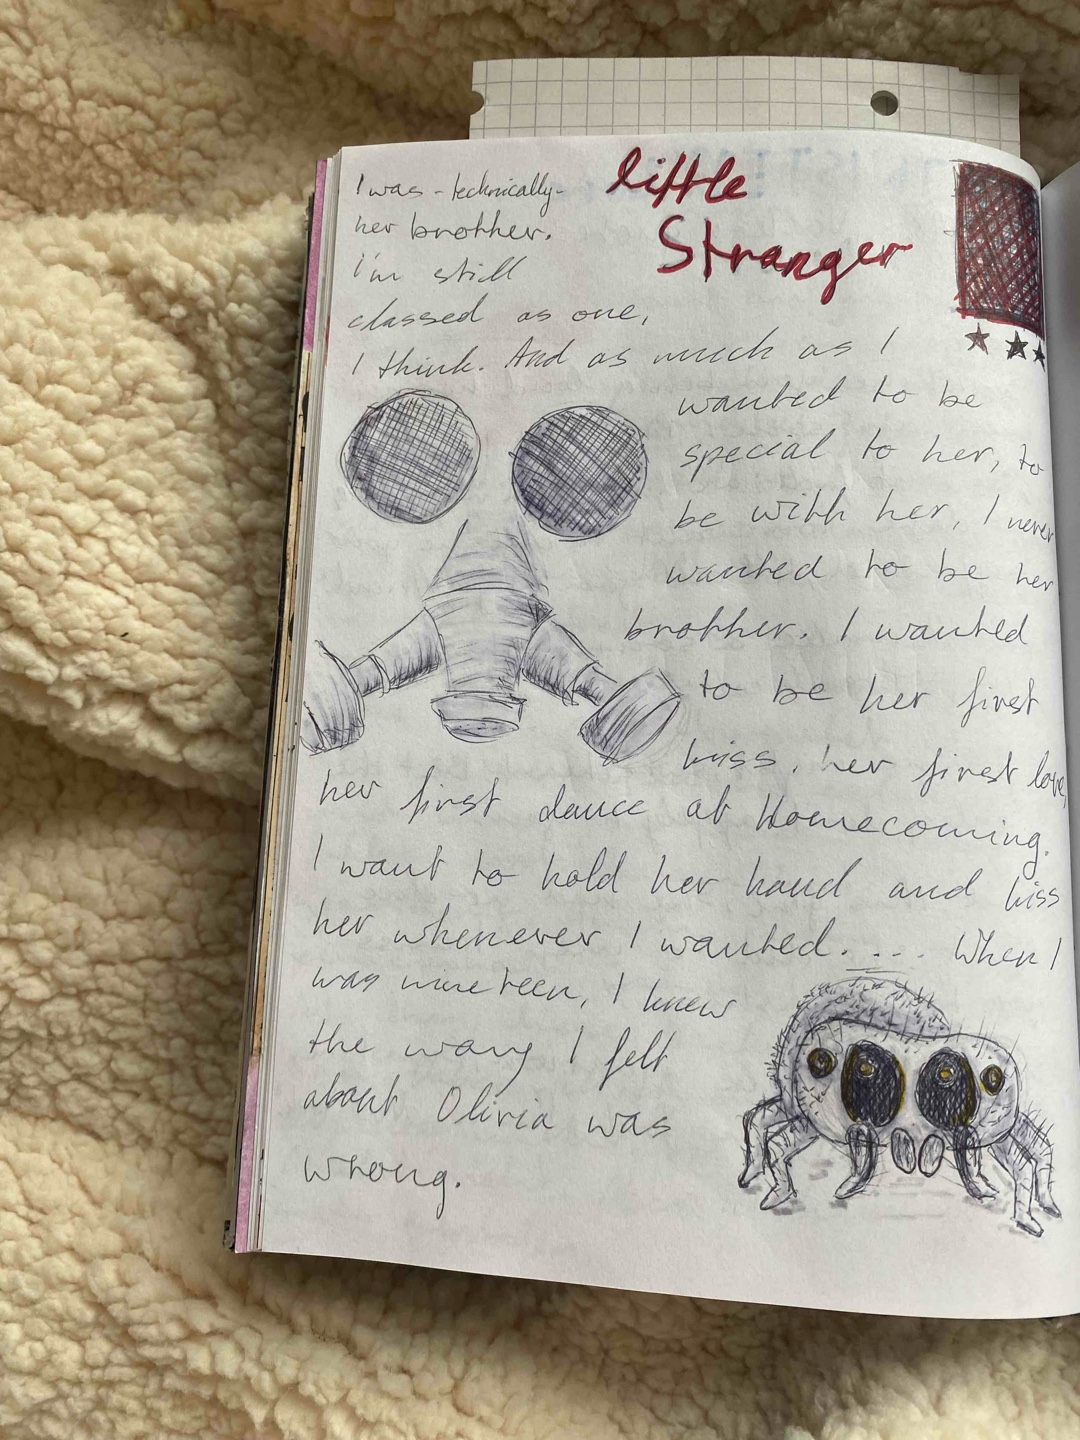 little
Stranger
I was - technically -
her brother.
i'm still
classed as one,
I think. And as much as I
wanted to be
special to her, to
be with her, I never
wanted to be her
brother. I wanted
to be her first
kiss, her first love,
her first dance at Homecoming.
I want to hold her hand and kiss
her whenever I wanted. ... When I
was nineteen, I knew
the way I felt
about Olivia was
wrong.